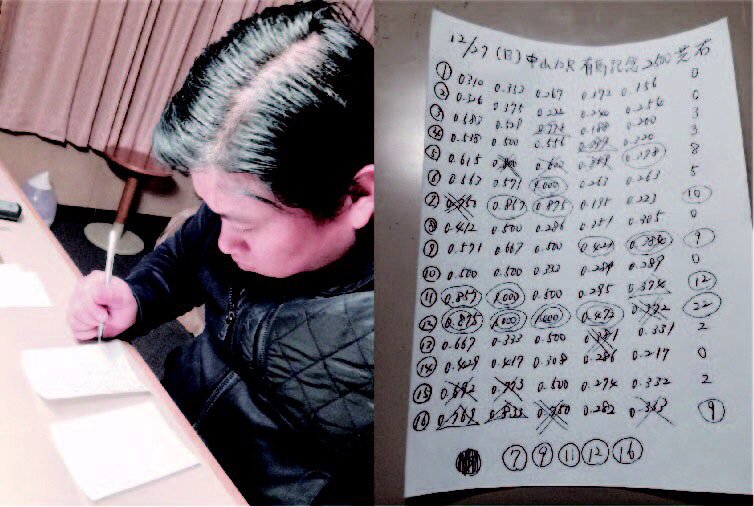 12/27(日)中山10R 有馬記念 2500 芝右
① 0.310 0.332 0.267 0.192 0.156 0
② 0.326 0.375 0.222 0.240 0.256 0
③ 0.383 0.528 0.778 0.188 0.200 3
④ 0.518 0.500 0.556 0.220 3
⑤ 0.615 0.288 8
⑥ 0.563 0.571 1.000 0.263 0.263 5
⑦ 0.750 0.857 0.875 0.195 0.223 10
⑧ 0.412 0.500 0.286 0.305 0
⑨ 0.571 0.667 0.500 0.423 9
⑩ 0.500 0.500 0.333 0.289 0.289 0
⑪ 0.857 1.000 0.500 0.285 0.374 12
⑫ 0.875 1.000 1.000 0.473 0.392 22
⑬ 0.667 0.333 0.500 0.381 0.331 2
⑭ 0.429 0.417 0.308 0.286 0.217 0
⑮ 0.692 0.773 0.500 0.274 0.332 2
⑯ 0.768 0.833 0.750 0.282 0.363 9
⑦ ⑨ ⑪ ⑫ ⑯